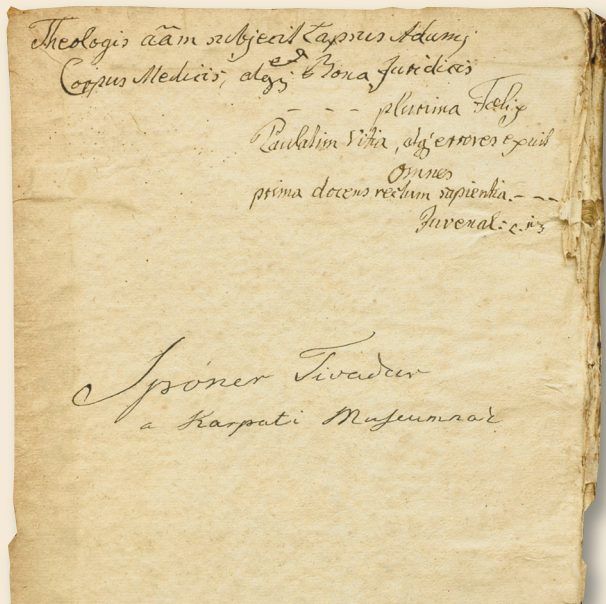 Theologis aãm subjecit Lapsus Adami
Corpus Medicis, atqz Bona Juridicis
ea
- - - plurima Fælix
Paulatim Vitia, atq' errores exuit
omnes
prima docens rectum sapientia. - - -
Juvenal:
Spóner Tivadar
a Karpati Museumnak